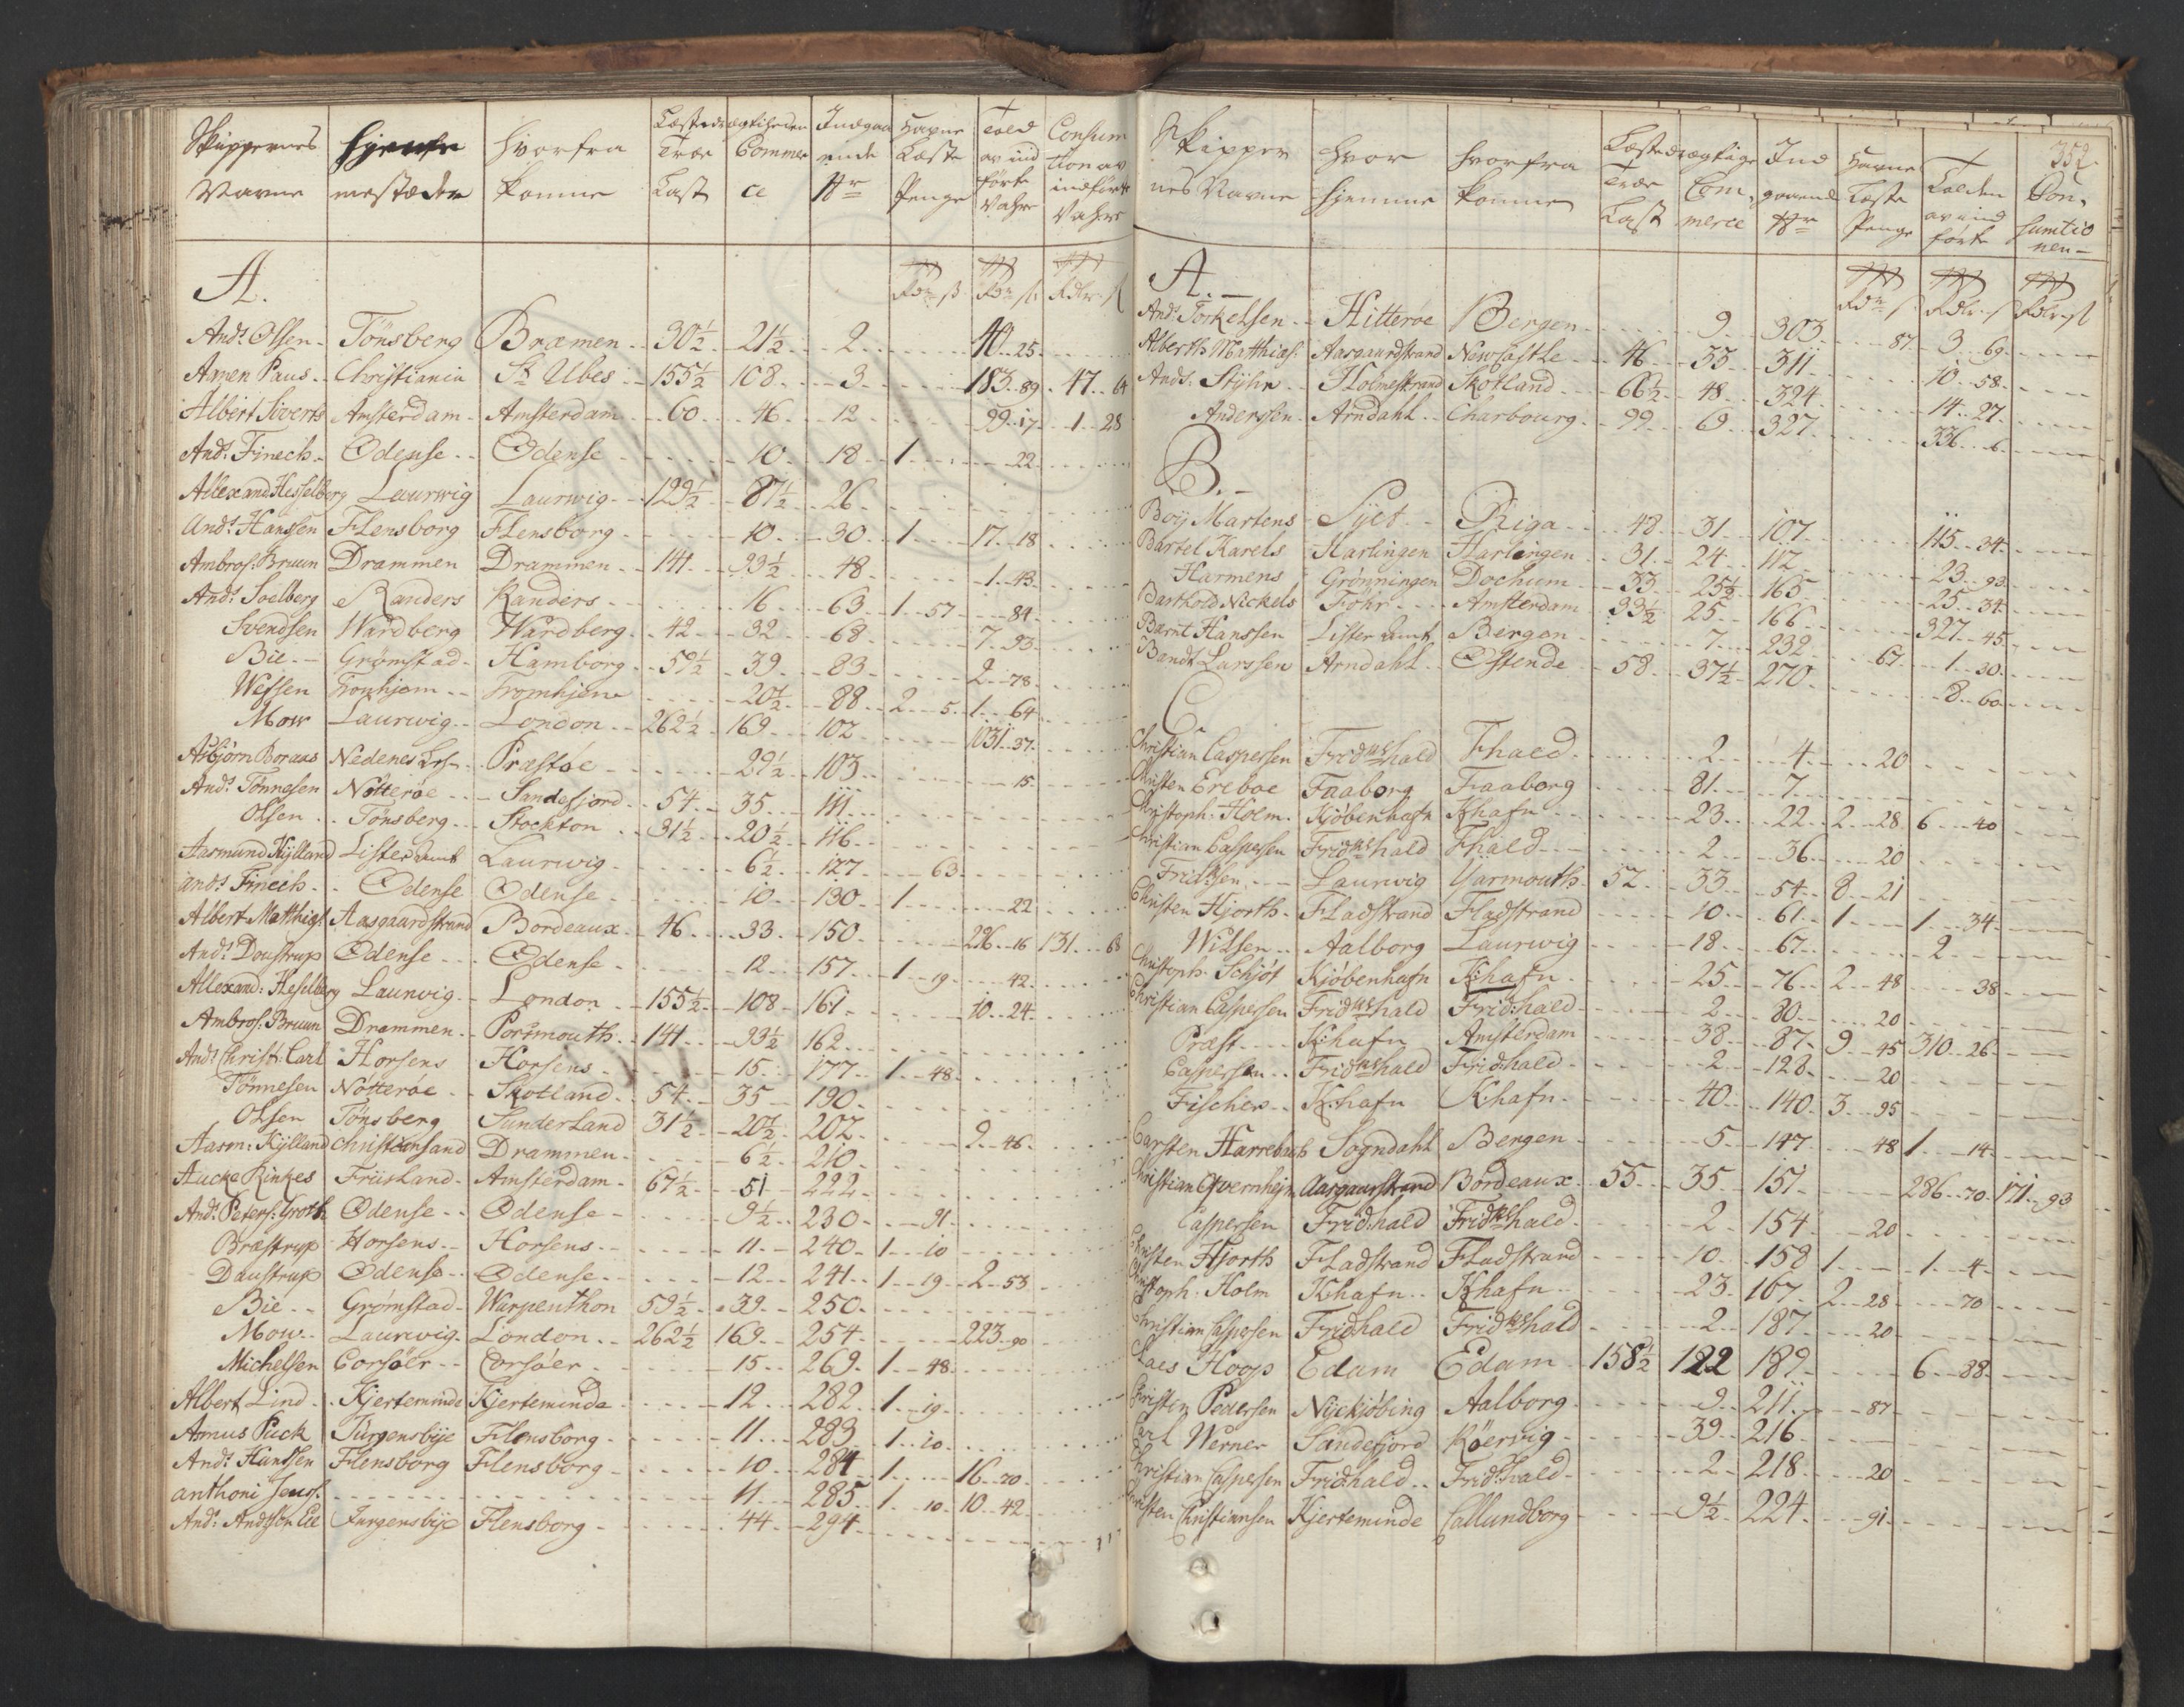 Skippernes Navne | hjemmestæder | hvorfra komme | Læstedrægtigheden Træe Last | Commerce | Indgaaende Nr | Havne Læste Penge | Told av indførte Vahre | Consumtion av indførte Vahre
A. | Rdr ß | Rdr ß | Rdlr ß
Ands Olsen | Tönsberg | Bræmen | 30½ | 21½ | 2 | 40 25
Amen Paus | Christiania | St Ubes | 155½ | 108 | 3 | 183 89 | 47 64
Albert Siverts | Amsterdam | Amsterdam | 60 | 46 | 12 | 99 17 | 1 28
Ands Finech | Odense | Odense | 10 | 18 | 1 | 22
Allexand Hesselberg | Laurwig | Laurwig | 129½ | 87½ | 26
Ands Hanssen | Flensborg | Flensborg | 10 | 30 | 1 | 17 18
Ambros: Bruun | Drammen | Drammen | 141 | 93½ | 48 | 1 43
Ands Soelberg | Randers | Randers | 16 | 63 | 1 57 | 84
Svendsen | Wardberg | Wardberg | 42 | 32 | 68 | 7 93
Bie | Grømstad | Hamborg | 59½ | 39 | 83 | 2 78
Wessen | Tronhjem | Tromhjem | 20½ | 88 | 2 5 | 1 64
Mow | Laurwig | London | 262½ | 169 | 102 | 1031 37
Asbjörn Boraas | Nedenes | Præstøe | 29½ | 103 | 15
Ands Tönnesen | Nötteröe | Sandefjord | 54 | 35 | 111
Olsen | Tönsberg | Stockton | 31½ | 20½ | 116
Aasmund Kijlland | Lister amt | Laurwig | 6½ | 127 | 63
Ands Finech | Odense | Odense | 10 | 130 | 1 | 22
Albert Matthias: | Aasgaardstrand | Bordeaux | 46 | 33 | 150 | 226 16 | 131 68
Ands Doustrup | Odense | Odense | 12 | 157 | 1 19 | 42
Allexand: Heselberg | Laurvig | London | 155½ | 108 | 161 | 10 24
Ambros: Bruun | Drammen | Portsmouth | 141 | 93½ | 162
Ands Christ: Carl | Horsens | Horsens | 15 | 177 | 1 48
Tönnesen | Nötteröe | Skotland | 54 | 35 | 190
Olsen | Tönsberg | Sunderland | 31½ | 20½ | 202 | 2 46
Aasm: Kijlland | Christiansand | Drammen | 6½ | 210
Aucke Rinkes | Friisland | Amsterdam | 67½ | 51 | 222
Ands Peters: Groth | Odense | Odense | 9½ | 230 | 91
Bræstrup | Horsens | Horsens | 11 | 240 | 1 10
Daustrup | Odense | Odense | 12 | 241 | 1 19 | 2 53
Bie | Grömstad | Warpenthon | 59½ | 39 | 250
Mow | Laurwig | London | 262½ | 169 | 254 | 223 90
Michelsen | Corsöer | Corsöer | 15 | 269 | 1 48
Albert Lind | Kjerteminde | Kjerteminde | 12 | 282 | 1 19
Asmus Puck | Jurgensbije | Flensborg | 11 | 283 | 1 10
Ands Handsen | Flensborg | Flensborg | 10 | 284 | 1 | 16 20
anthoni Jens: | 11 | 285 | 1 10 | 10 42
Ands | Jurgensbije | Flensborg | 44 | 294
352.
Skippernes Navne | hvor hjemme | hvorfra komme | Læstedrægtige Træe Last | Commerce | Indgaaende Nr | Havne Læste Penge | Tolden av indførte | Consumtionen
A. | Rdr ß | Rdlr ß | Rdlr ß
Ands Torkelsen | Hitteroe | Bergen | 9 | 303 | 87 | 3 69
Alberth Matthias: | Aasgaardstrand | Newcastle | 46 | 33 | 311 | 10 58
Ands Stühr | Holmestrand | Skotland | 66½ | 48 | 324 | 14 27
Anderssen | Arndahl | Charbourg | 99 | 69 | 327 | 336 6
B.
Boij Martens | Sylt | Riga | 48 | 31 | 107 | 115 34
Bartel Karels | Harlingen | Harlingen | 31 | 24 | 112 | 23 93
Harmens | Grönningen | Dochum | 33 | 25½ | 165 | 25 34
Barthold Nickels | Föhr | Amsterdam | 33½ | 25 | 166 | 327 45
Barnt Hanssen | Lister amt | Bergen | 7 | 232 | 67 | 1 30
Bandt Larssen | Arndahl | Ostende | 58 | 37½ | 270 | 8 60
C.
Christian Caspersen | Fridkshald | Fhald | 2 | 4 | 20
Christen Ereboe | Faaborg | Faaborg | 81 | 7
Christoph: Holm | Kjöbenhafn | Khafn | 23 | 22 | 2 28 | 6 40
Christian Caspersen | Fridkshald | Fhald | 2 | 36 | 20
Fridksen | Laurwig | Yarmouth | 52 | 33 | 54 | 8 21
Christen Hjorth | Fladstrand | Fladstrand | 10 | 61 | 1 | 1 34
Wilsen | Aalborg | Laurwig | 18 | 67 | 2
Christoph: Schjöt | Kjöbenhafn | Khafn | 25 | 76 | 2 48 | 38
Christian Caspersen | Fridkshald | Frid:hald | 2 | 80 | 20
Præst | K:hafn | Amsterdam | 38 | 87 | 9 45 | 310 26
Caspersen | Fridkshald | Fridhald | 2 | 128 | 20
Fischer | K:hafn | Khafn | 40 | 140 | 3 95
Carsten Harreboe | Sogndahl | Bergen | 5 | 147 | 48 | 1 14
Christian Qvernhejm | Aasgaarstrand | Bordeaux | 55 | 35 | 151 | 286 70 | 171 93
Caspersen | Frid:hald | Fridkshald | 2 | 154 | 20
Christen Hjorth | Fladstrand | Fladstrand | 10 | 158 | 1 | 1 4
Christoph: Holm | Khafn | Khafn | 23 | 167 | 2 28 | 70
Christian Caspersen | Fridhald | Fridkshald | 2 | 187 | 20
Claes Hoop | Edam | Edam | 158½ | 122 | 189 | 6 88
Christin Pedersen | Nijekjöbing | Aalborg | 9 | 211 | 87
Carl Werner | Sandefjord | Röervig | 39 | 216
Christian Caspersen | Fridhald | Frid:hald | 2 | 218 | 20
Christen Christiansen | Kjerteminde | Callundborg | 9½ | 224 | 91